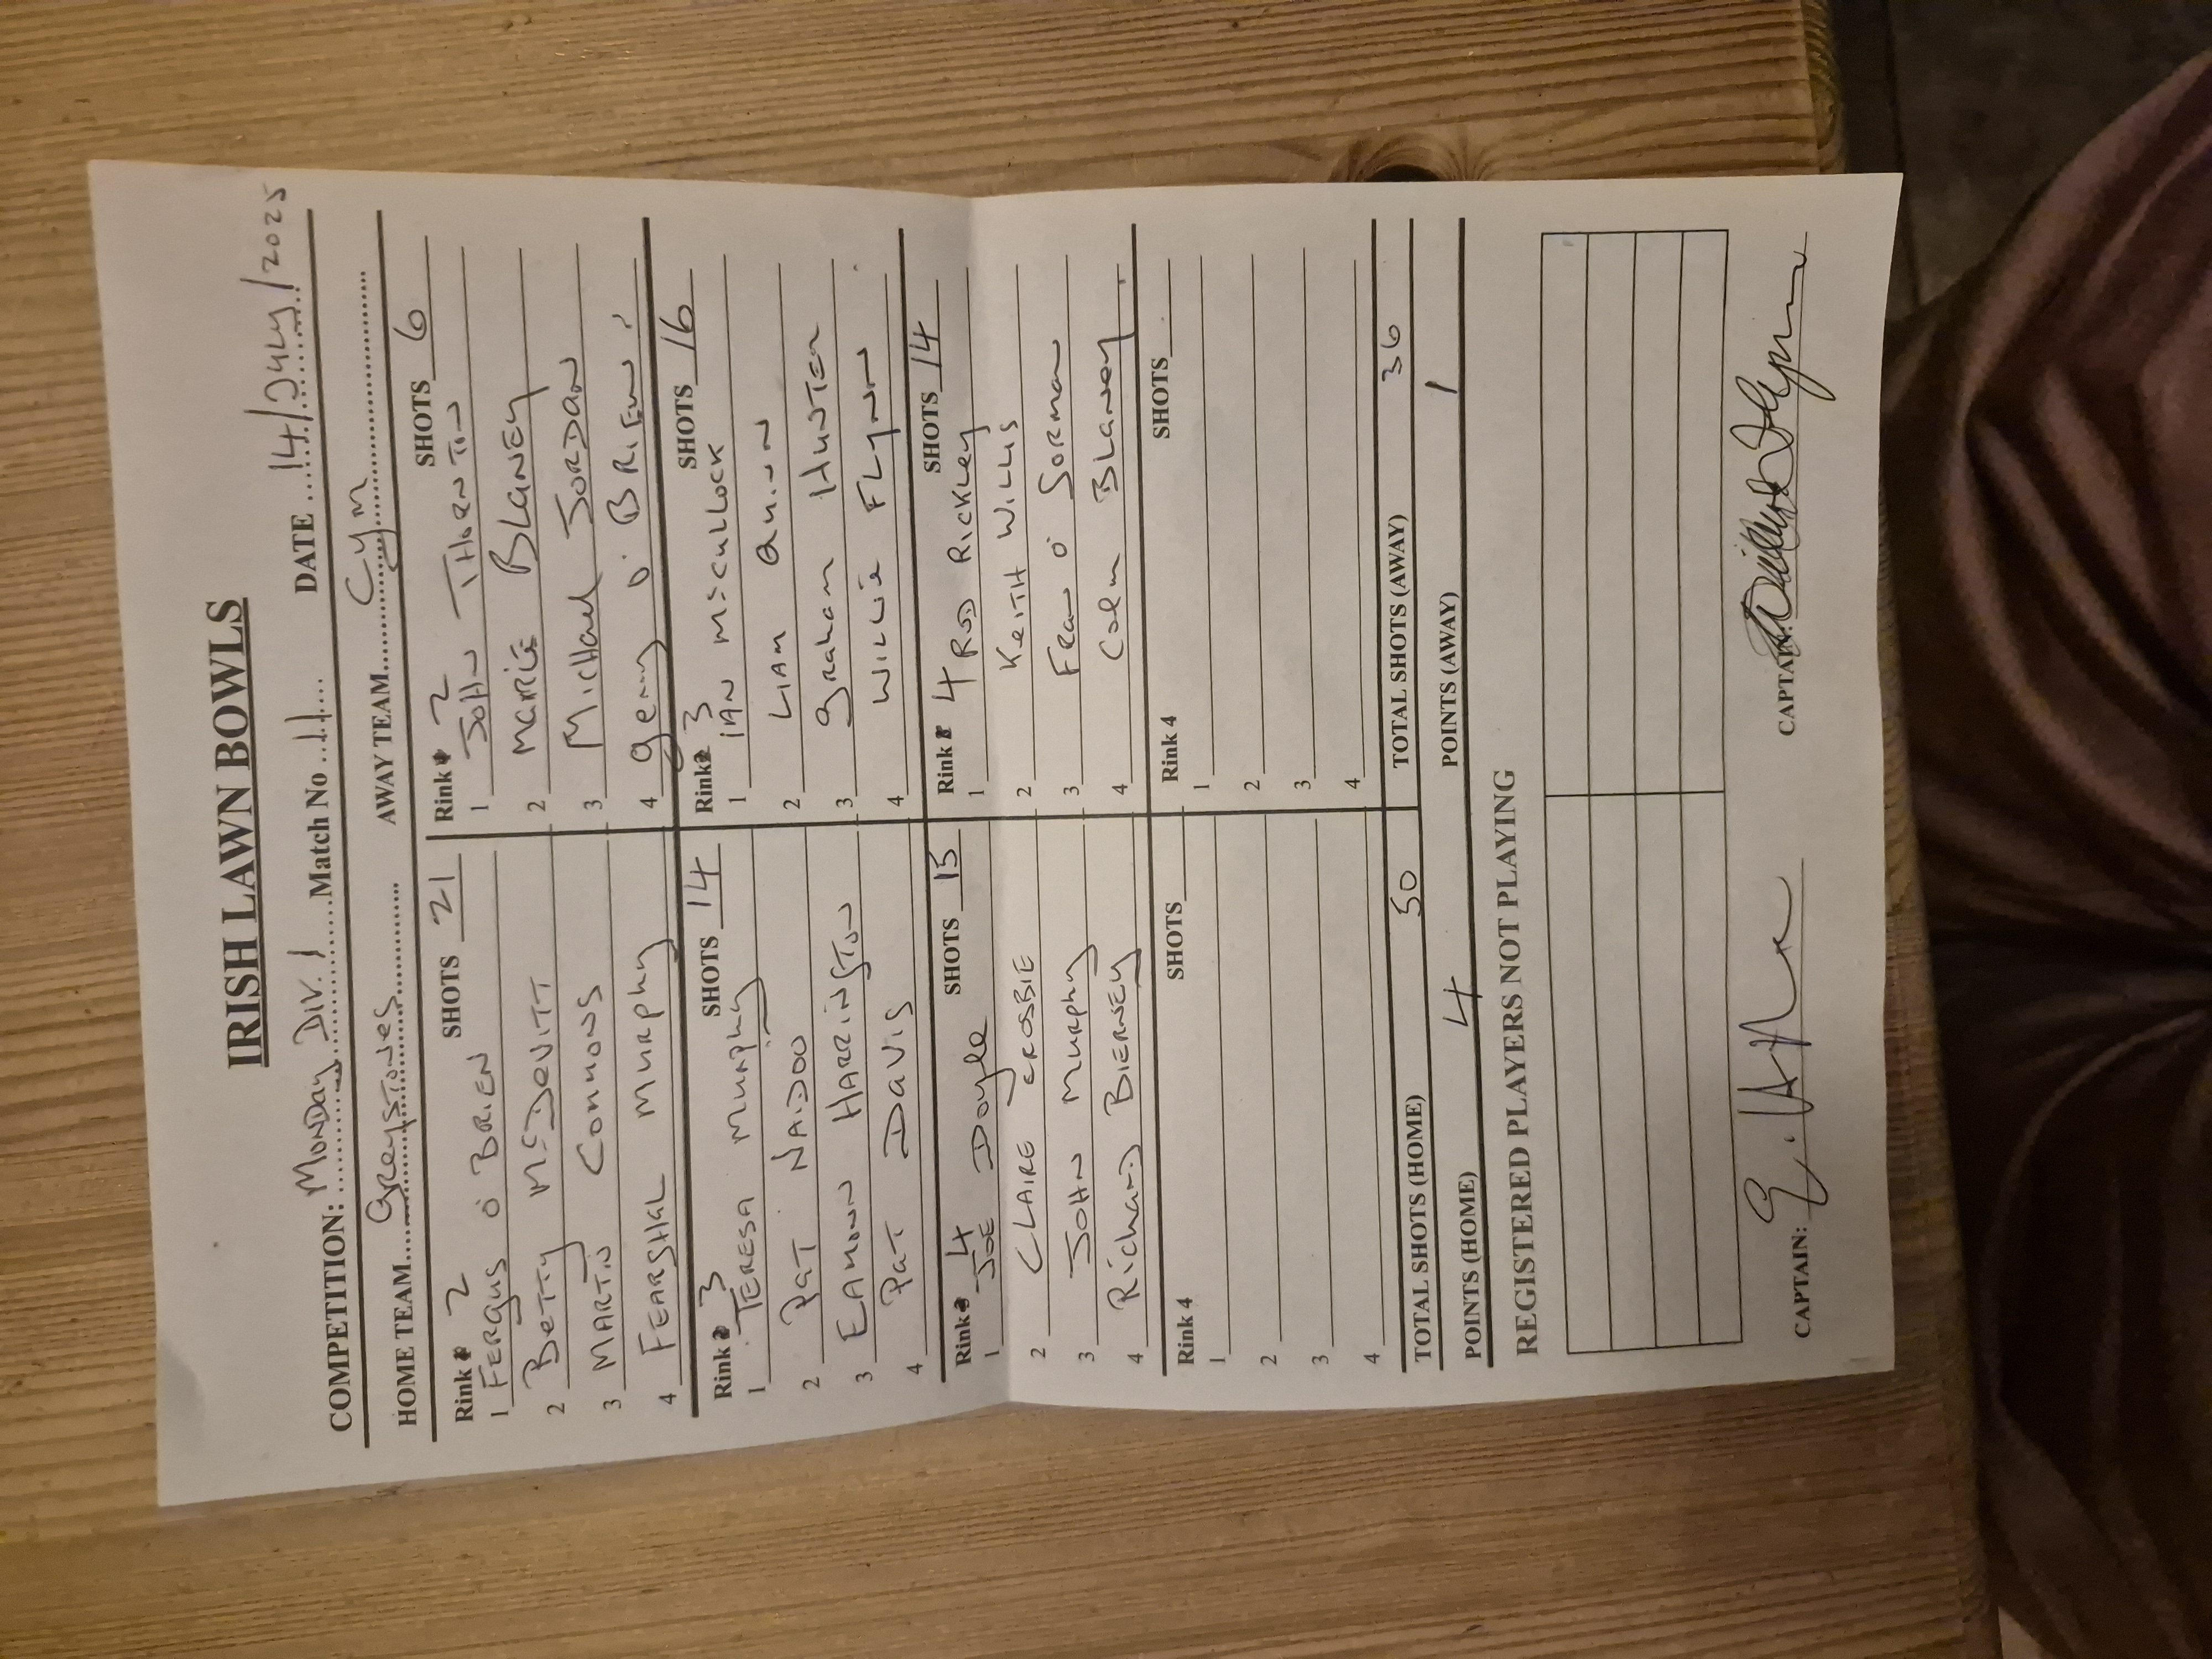 IRISH LAWN BOWLS
COMPETITION: MONDAY DIV. 1 Match No 11 DATE 14/July/2025
HOME TEAM Greystones AWAY TEAM Cym
Rink 2 SHOTS 21 Rink 2 SHOTS 6
1 FERGUS O BRIEN 1 JOHN THORNTON
2 BETTY McDEVITT 2 MARIE BLANEY
3 MARTIN COMMONS 3 MICHAEL JORDAN
4 FEARGHAL MURPHY 4 Gerry O'BRIEN
Rink 3 SHOTS 14 Rink 3 SHOTS 16
1 TERESA MURPHY 1 IAN McCULLOCK
2 PAT NAIDOO 2 LIAM QUINN
3 EAMONN HARRINGTON 3 Graham HUNTER
4 PAT DAVIS 4 WILLIE FLYNN
Rink 4 SHOTS 15 Rink 4 SHOTS 14
1 JOE Doyle 1 ROD RICKLEY
2 CLAIRE CROSBIE 2 KEITH WILLIS
3 JOHN MURPHY 3 FRAN O GORMAN
4 Richard BIERNEY 4 Colm BLANEY
Rink 4 SHOTS Rink 4 SHOTS
1 1
2 2
3 3
4 4
TOTAL SHOTS (HOME) 50 TOTAL SHOTS (AWAY) 36
POINTS (HOME) 4 POINTS (AWAY) 1
REGISTERED PLAYERS NOT PLAYING
CAPTAIN: CAPTAIN: